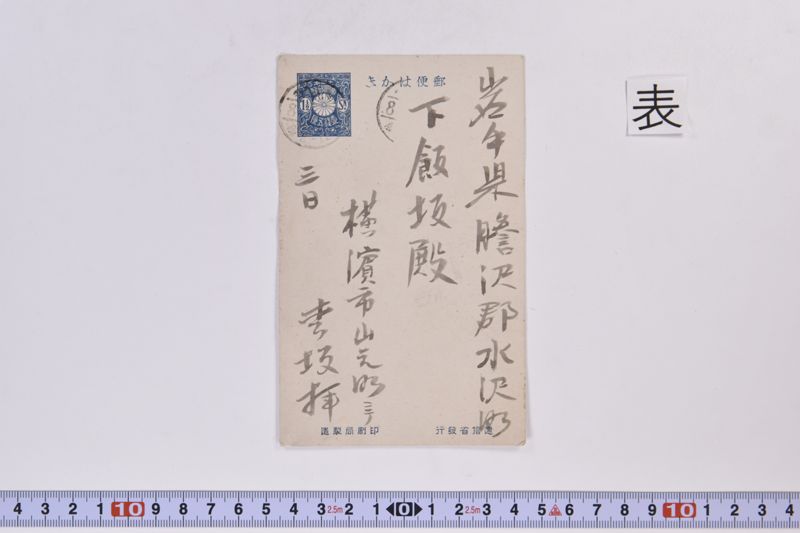 表
郵便はかき
岩手県膽沢郡水沢町
下飯坂殿
横濱市山元町三ノ
三日
坂拝
遞信省發行
印刷局製造
4 3 2 1 10 9 8 7 6 5 4 3 2.5m 2 1 0 1 2 2.5m 3 4 5 6 7 8 9 10 1 2 3 4